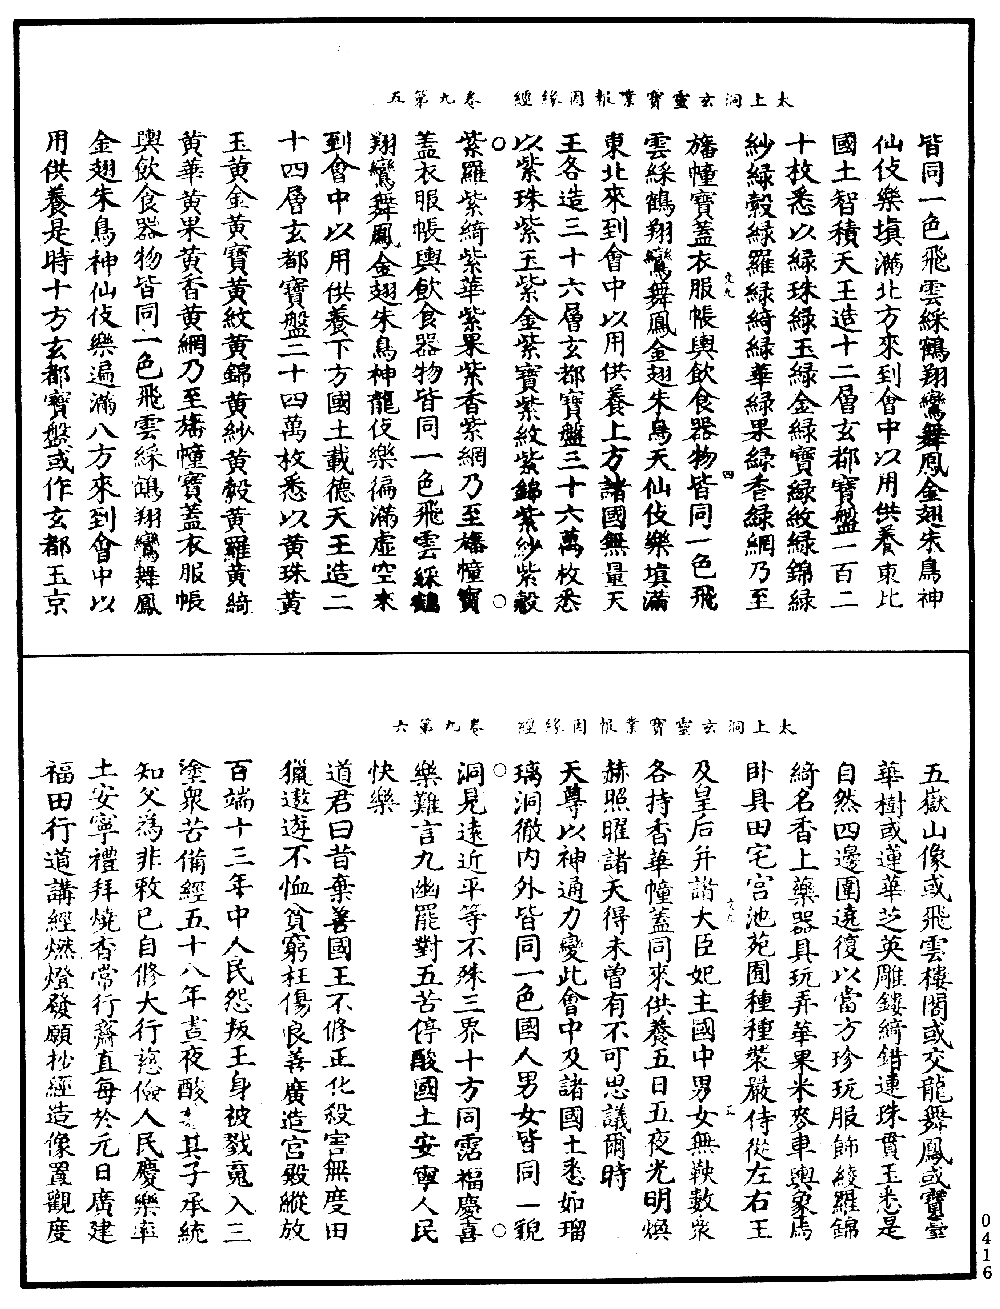 太上洞玄靈寶業報因緣經　卷九第五
皆同一色飛雲綵鶴翔鸞舞鳳金翅朱鳥神
仙伎樂填滿北方來到會中以用供養東北
國土智積天王造十二層玄都寶盤一百二
十枚悉以緑珠緑玉緑金緑寶緑紋緑錦緑
紗緑縠緑羅緑綺緑華緑果緑香緑網乃至
旛幢寶蓋衣服帳輿飲食器物皆同一色飛
雲綵鶴翔鸞舞鳳金翅朱鳥天仙伎樂填滿
東北來到會中以用供養上方諸國無量天
王各造三十六層玄都寶盤三十六萬枚悉
以紫珠紫玉紫金紫寶紫紋紫錦紫紗紫縠
紫羅紫綺紫華紫果紫香紫網乃至旛幢寶
蓋衣服帳輿飲食器物皆同一色飛雲綵鶴
翔鸞舞鳳金翅朱鳥神龍伎樂徧滿虛空來
到會中以用供養下方國土載德天王造二
十四層玄都寶盤二十四萬枚悉以黄珠黄
玉黄金黄寶黄紋黄錦黄紗黄縠黄羅黄綺
黄華黄果黄香黄網乃至旛幢寶蓋衣服帳
輿飲食器物皆同一色飛雲綵鶴翔鸞舞鳳
金翅朱鳥神仙伎樂遍滿八方來到會中以
用供養是時十方玄都寶盤或作玄都玉京
太上洞玄靈寶業報因緣經　卷九第六
五嶽山像或飛雲樓閣或交龍舞鳳或寶臺
華樹或蓮華芝英雕鏤綺錯連珠貫玉悉是
自然四邊圍遶復以當方珍玩服飾綾羅錦
綺名香上藥器具玩弄華果米麥車輿象馬
卧具田宅宫池苑囿種種裝嚴侍從左右王
及皇后并諸大臣妃主國中男女無鞅數衆
各持香華幢蓋同來供養五日五夜光明煥
赫照曜諸天得未曾有不可思議爾時
天尊以神通力變此會中及諸國土悉如瑠
璃洞徹内外皆同一色國人男女皆同一貌
洞見遠近平等不殊三界十方同霑福慶喜
樂難言九幽罷對五苦停酸國土安寧人民
快樂
道君曰昔棄善國王不修正化殺害無度田
獵遨遊不恤貧窮枉傷良善廣造宫殿縱放
百端十三年中人民怨叛王身被戮䰟入三
塗衆苦備經五十八年晝夜酸其子承統
知父為非敕已自修大行慈儉人民慶樂率
土安寧禮拜燒香常行齋直每於元日廣建
福田行道講經燃燈發願抄經造像置觀度
0416